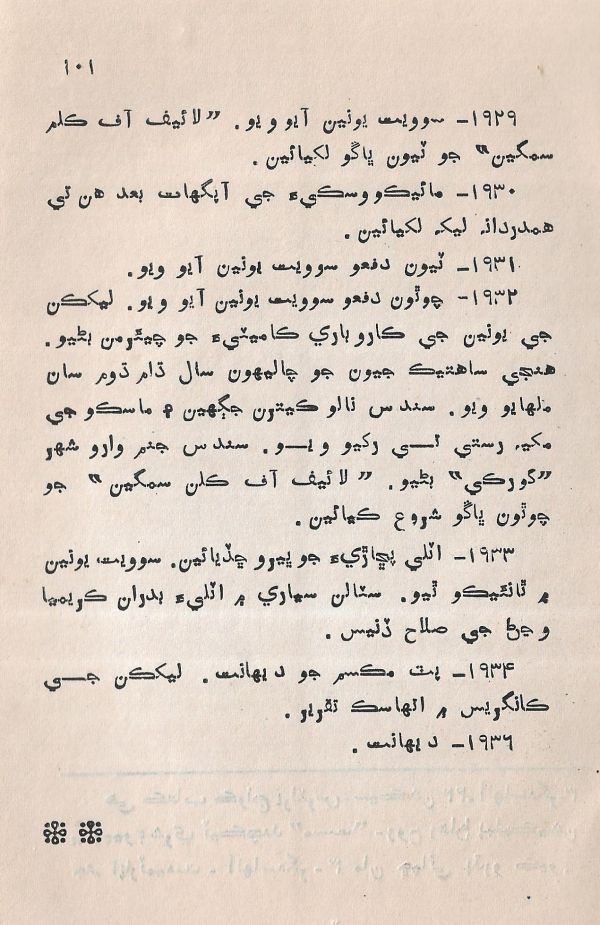 ۱۰۱
۱۹۲۹- سوويت يونين آيو ويو. ”لائيف آف ڪلم
سمگين“ جو ٽيون ڀاڱو لکيائين.
۱۹۳۰- مائيڪووسڪيءَ جي آپگهات بعد هن تي
همدردانہ ليک لکيائين.
۱۹۳۱- ٽيون دفعو سوويت يونين آيو ويو.
۱۹۳۲- چوٿون دفعو سوويت يونين آيو ويو. ليکڪن
جي يونين جي ڪاروباري ڪاميٽيءَ جو چيئرمن بڻيو.
هنجي ساهتيڪ جيون جو چاليهون سال ڌام ڌوم سان
ملهايو ويو. سندس نالو ڪيترن جڳهين ۾ ماسڪو جي
مکيہ رستي تي رکيو ويو. سندس جنم وارو شهر
”گورڪي“ بڻيو. ”لائيف آف ڪلن سمگين“ جو
چوٿون ڀاڱو شروع ڪيائين.
۱۹۳۳- اٽلي پڇاڙيءَ جو ڀيرو ڇڏيائين. سوويت يونين
۾ ٿانئيڪو ٿيو. سٽالن سياري ۾ اٽليءَ بدران ڪريميا
وڃڻ جي صلاح ڏنيس.
۱۹۳۴- پٽ مڪسم جو ديهانت. ليکڪن جي
ڪانگريس ۾ اتهاسڪ تقرير.
۱۹۳۶- ديهانت.